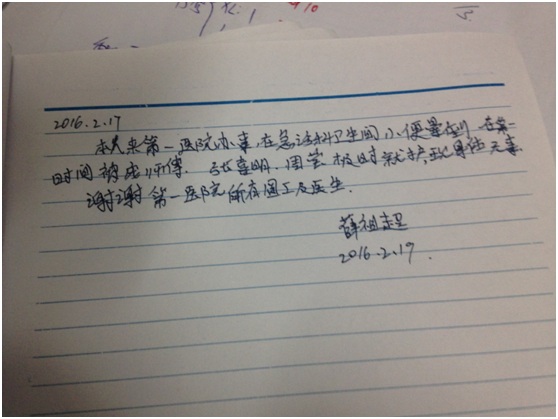 2016.2.17
本人来第一医院办事,在急诊科卫生间小便晕倒,在第一
时间被成师傅.张喜明.周莹.及时救护,现身体无事.
谢谢第一医院所有国工及医生.
薛祖超
2016.2.17.